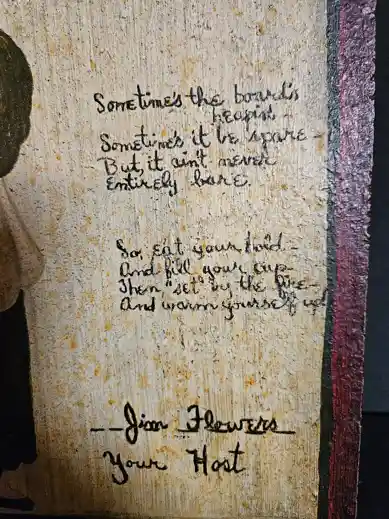 Sometime's the board's
heapin' -
Sometime's it be spare -
But it ain't never
Entirely bare.
So, eat your hold -
And fill your cup -
Then "set" by the fire -
And warm yourself up!
__Jim Flowers__
Your Host